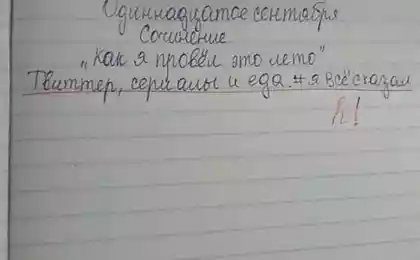 Одиннадцатое сентября
Сочинение
„Как я провёл это лето"
Твиттер, сериалы и еда. #я всё сказал